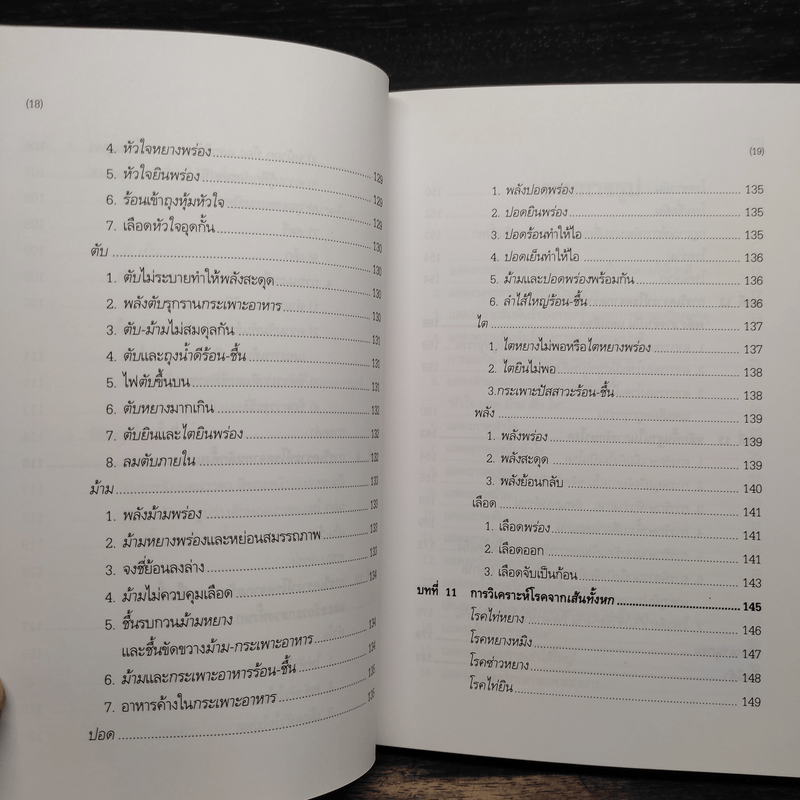 (18)
4. หัวใจหยางพร่อง 129
5. หัวใจยินพร่อง 129
6. ร้อนเข้าถุงหุ้มหัวใจ 129
7. เลือดหัวใจอุดกั้น 130
ตับ 130
1. ตับไม่ระบายทำให้พลังสะดุด 130
2. พลังตับรุกรานกระเพาะอาหาร 130
3. ตับ-ม้ามไม่สมดุลกัน 131
4. ตับและถุงน้ำดีร้อน-ชื้น 131
5. ไฟตับขึ้นบน 131
6. ตับหยางมากเกิน 132
7. ตับยินและไตยินพร่อง 132
8. ลมตับภายใน 132
ม้าม 133
1. พลังม้ามพร่อง 133
2. ม้ามหยางพร่องและหย่อนสมรรถภาพ 133
3. จงชี่ย้อนลงล่าง 133
4. ม้ามไม่ควบคุมเลือด 134
5. ชื้นรบกวนม้ามหยาง
และชื้นขัดขวางม้าม-กระเพาะอาหาร 134
6. ม้ามและกระเพาะอาหารร้อน-ชื้น 134
7. อาหารค้างในกระเพาะอาหาร 135
ปอด 135
(19)
1. พลังปอดพร่อง 135
2. ปอดยินพร่อง 135
3. ปอดร้อนทำให้ไอ 135
4. ปอดเย็นทำให้ไอ 136
5. ม้ามและปอดพร่องพร้อมกัน 136
6. ลำไส้ใหญ่ร้อน-ชื้น 136
ไต 137
1. ไตหยางไม่พอหรือไตหยางพร่อง 137
2. ไตยินไม่พอ 138
3.กระเพาะปัสสาวะร้อน-ชื้น 138
พลัง 139
1. พลังพร่อง 139
2. พลังสะดุด 139
3. พลังย้อนกลับ 140
เลือด 141
1. เลือดพร่อง 141
2. เลือดออก 141
3. เลือดจับเป็นก้อน 143
บทที่ 11 การวิเคราะห์โรคจากเส้นทั้งหก 145
โรคไท่หยาง 146
โรคหยางหมิง 147
โรคซ่าวหยาง 148
โรคไท่ยิน 149